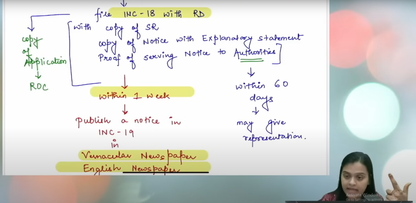 file INC-18 with RD
with copy of SR
copy of Notice with Explanatory statement
Proof of serving Notice to Authorities
copy
of
Application
ROC
within 1 week
publish a notice in
INC-19
in
Vernacular Newspaper
English Newspaper
within 60
days
may give
representation.